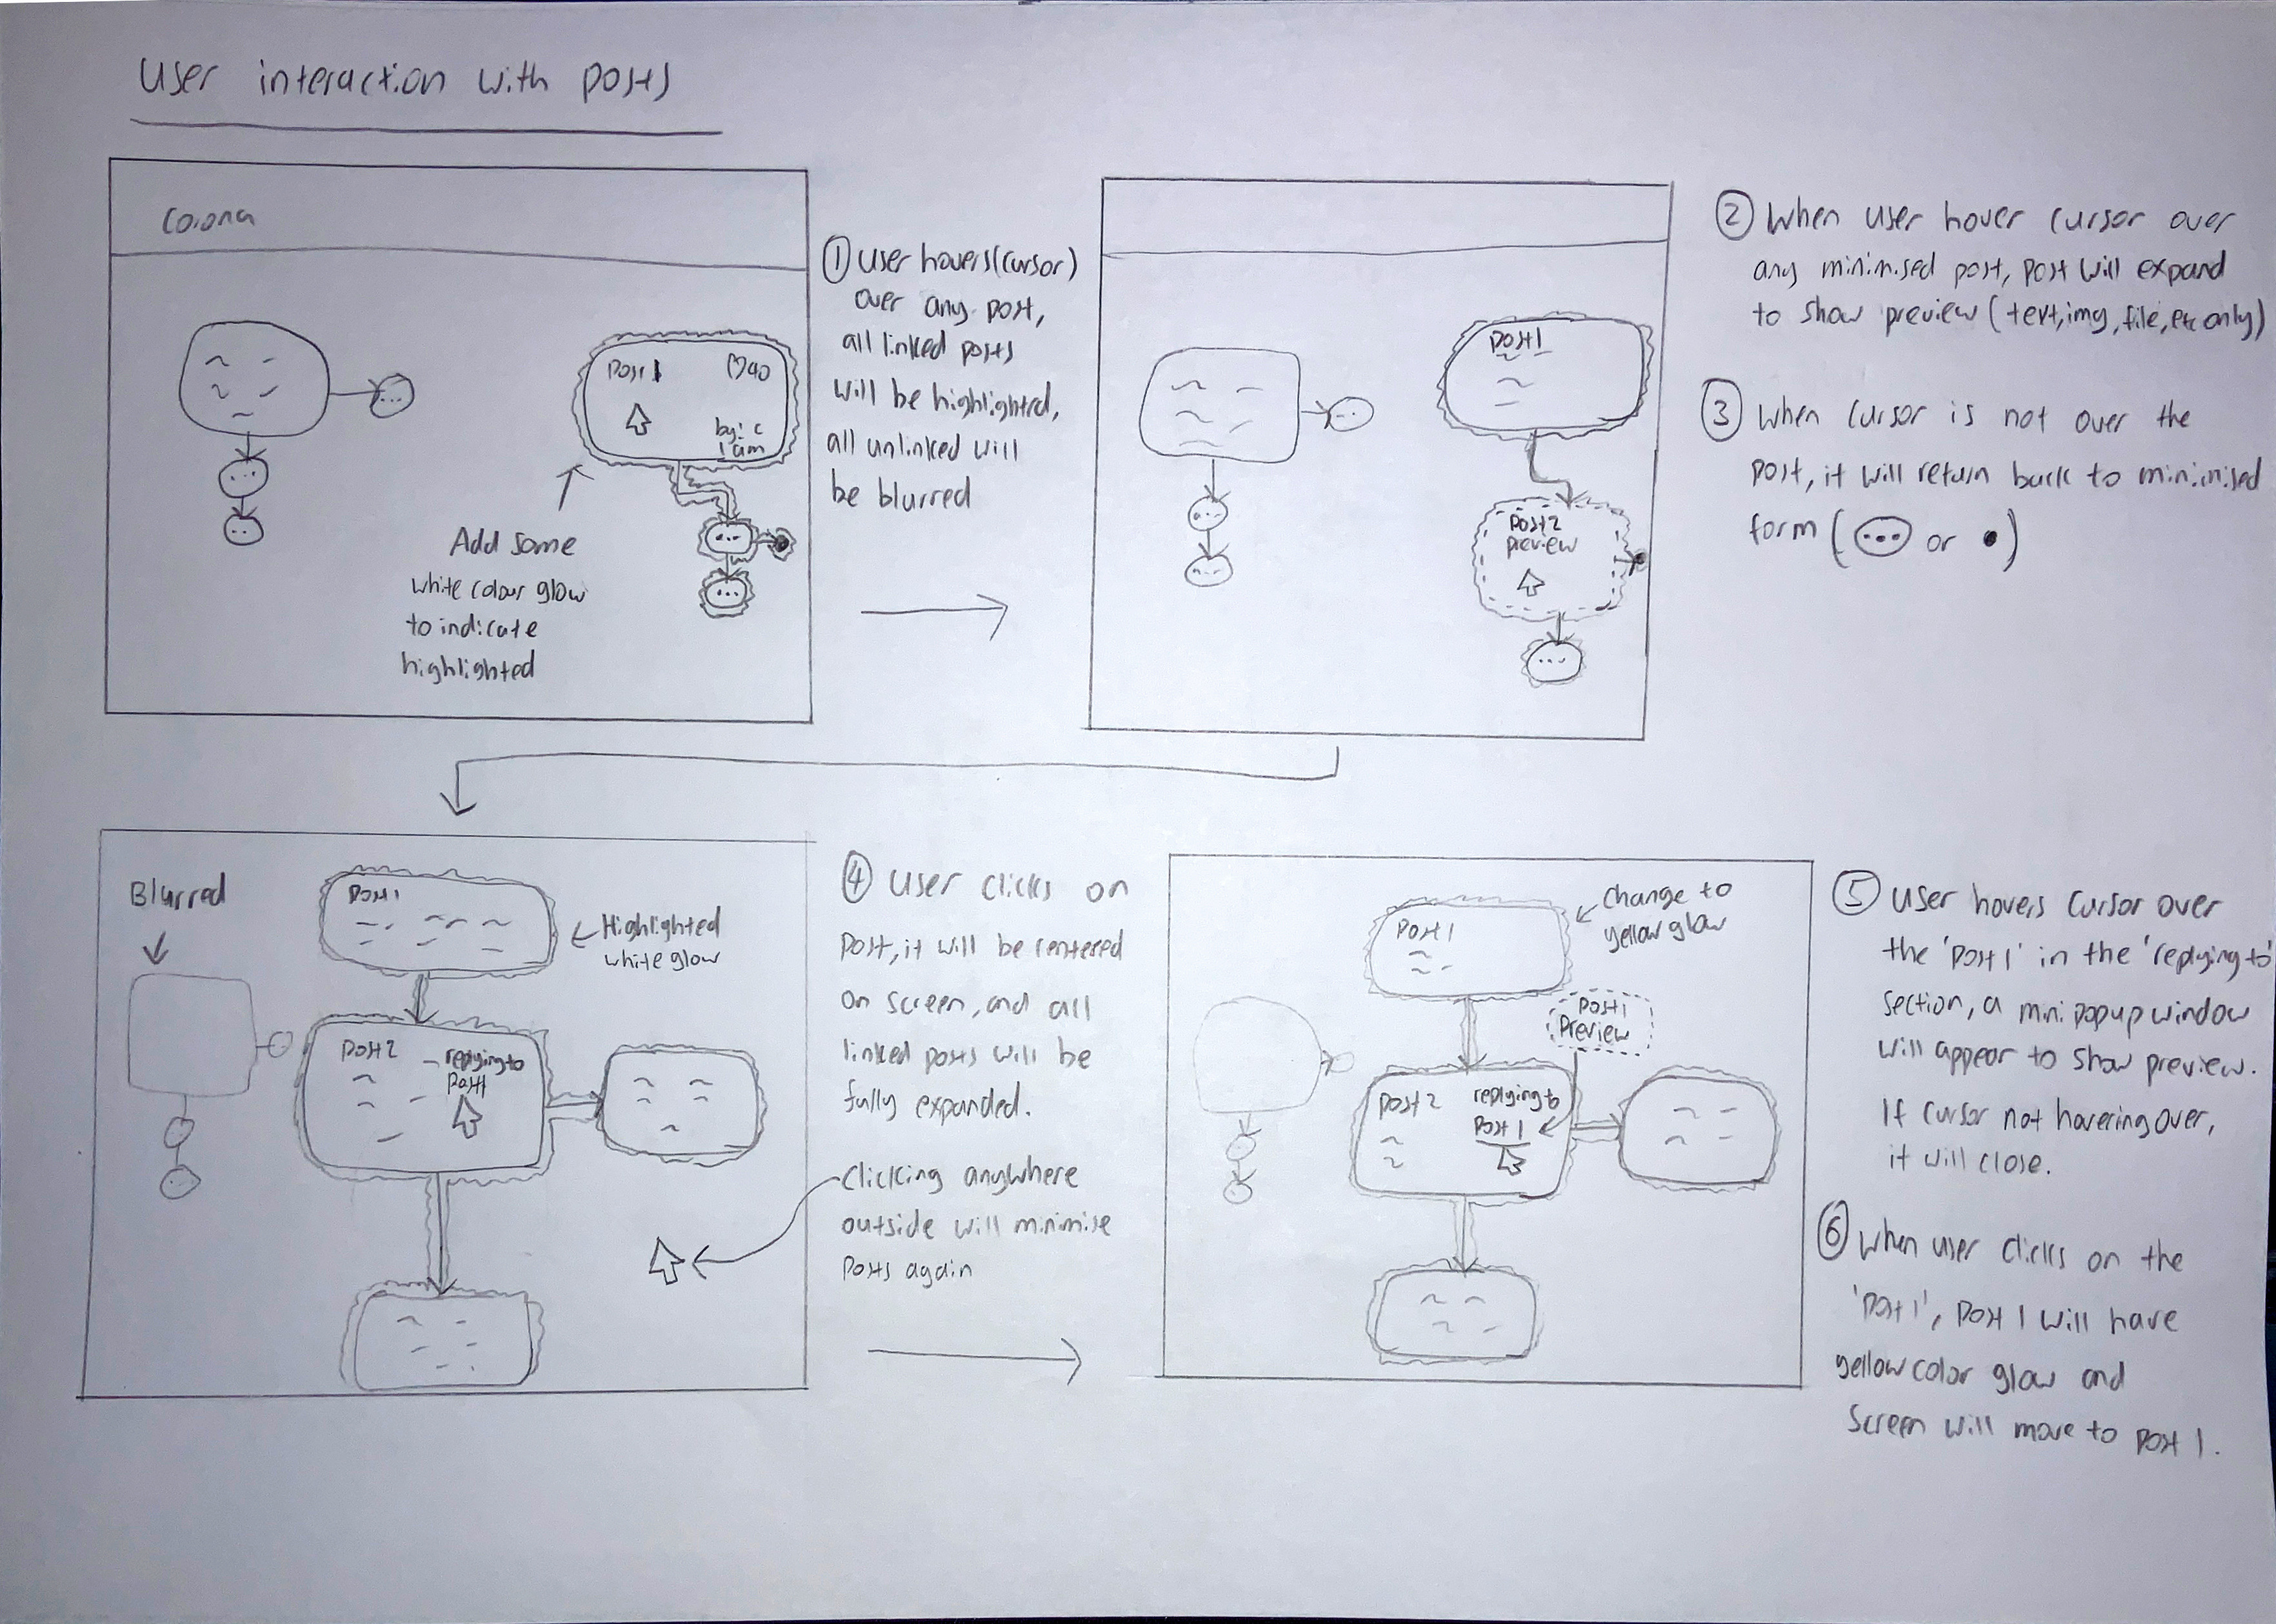 User interaction with posts
Corona
Post 1 ♡40
by: c
1 am
Add some
white colour glow
to indicate
highlighted
① User hovers (cursor)
over any post,
all linked posts
will be highlighted,
all unlinked will
be blurred
Post 1
Post 2
preview
② When user hover cursor over
any minimised post, post will expand
to show preview (text, img, file, etc only)
③ When cursor is not over the
post, it will return back to minimised
form (... or ●)
Blurred
Post 1
Highlighted
white glow
Post 2 - replying to
Post 1
④ User clicks on
post, it will be centered
on screen, and all
linked posts will be
fully expanded.
Clicking anywhere
outside will minimise
posts again
Change to
yellow glow
Post 1
Post 1
Preview
Post 2 replying to
Post 1
⑤ User hovers cursor over
the 'post 1' in the 'replying to'
section, a mini popup window
will appear to show preview.
If cursor not hovering over,
it will close.
⑥ When user clicks on the
'post 1', post 1 will have
yellow color glow and
screen will move to post 1.